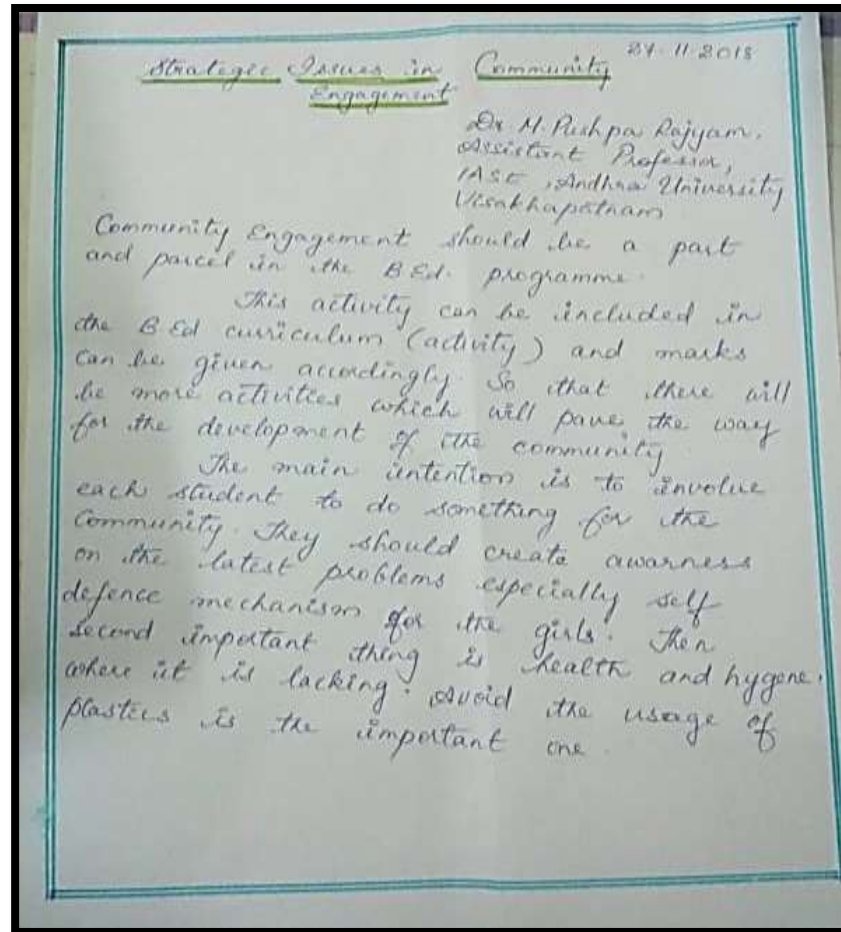 27.11.2018
Strategic Issues in Community
Engagement
Dr. M. Pushpa Rajyam,
Assistant Professor,
IASE, Andhra University
Visakhapatnam
Community Engagement should be a part
and parcel in the B Ed. programme.
This activity can be included in
the B Ed curriculum (activity) and marks
can be given accordingly. So that there will
be more activities which will pave the way
for the development of the community
The main intention is to involve
each student to do something for the
Community. They should create awarness
on the latest problems especially self
defence mechanism for the girls. Then
second important thing is health and hygene.
where it is lacking. Avoid the usage of
plastics is the important one.